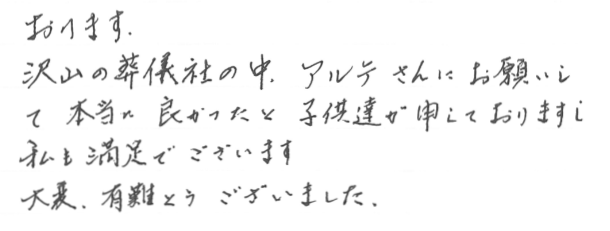 おります.
沢山の葬儀社の中、アルテさんにお願いし
て本当に良かったと子供達が申しておりますし
私も満足でございます
大変、有難とうございました、